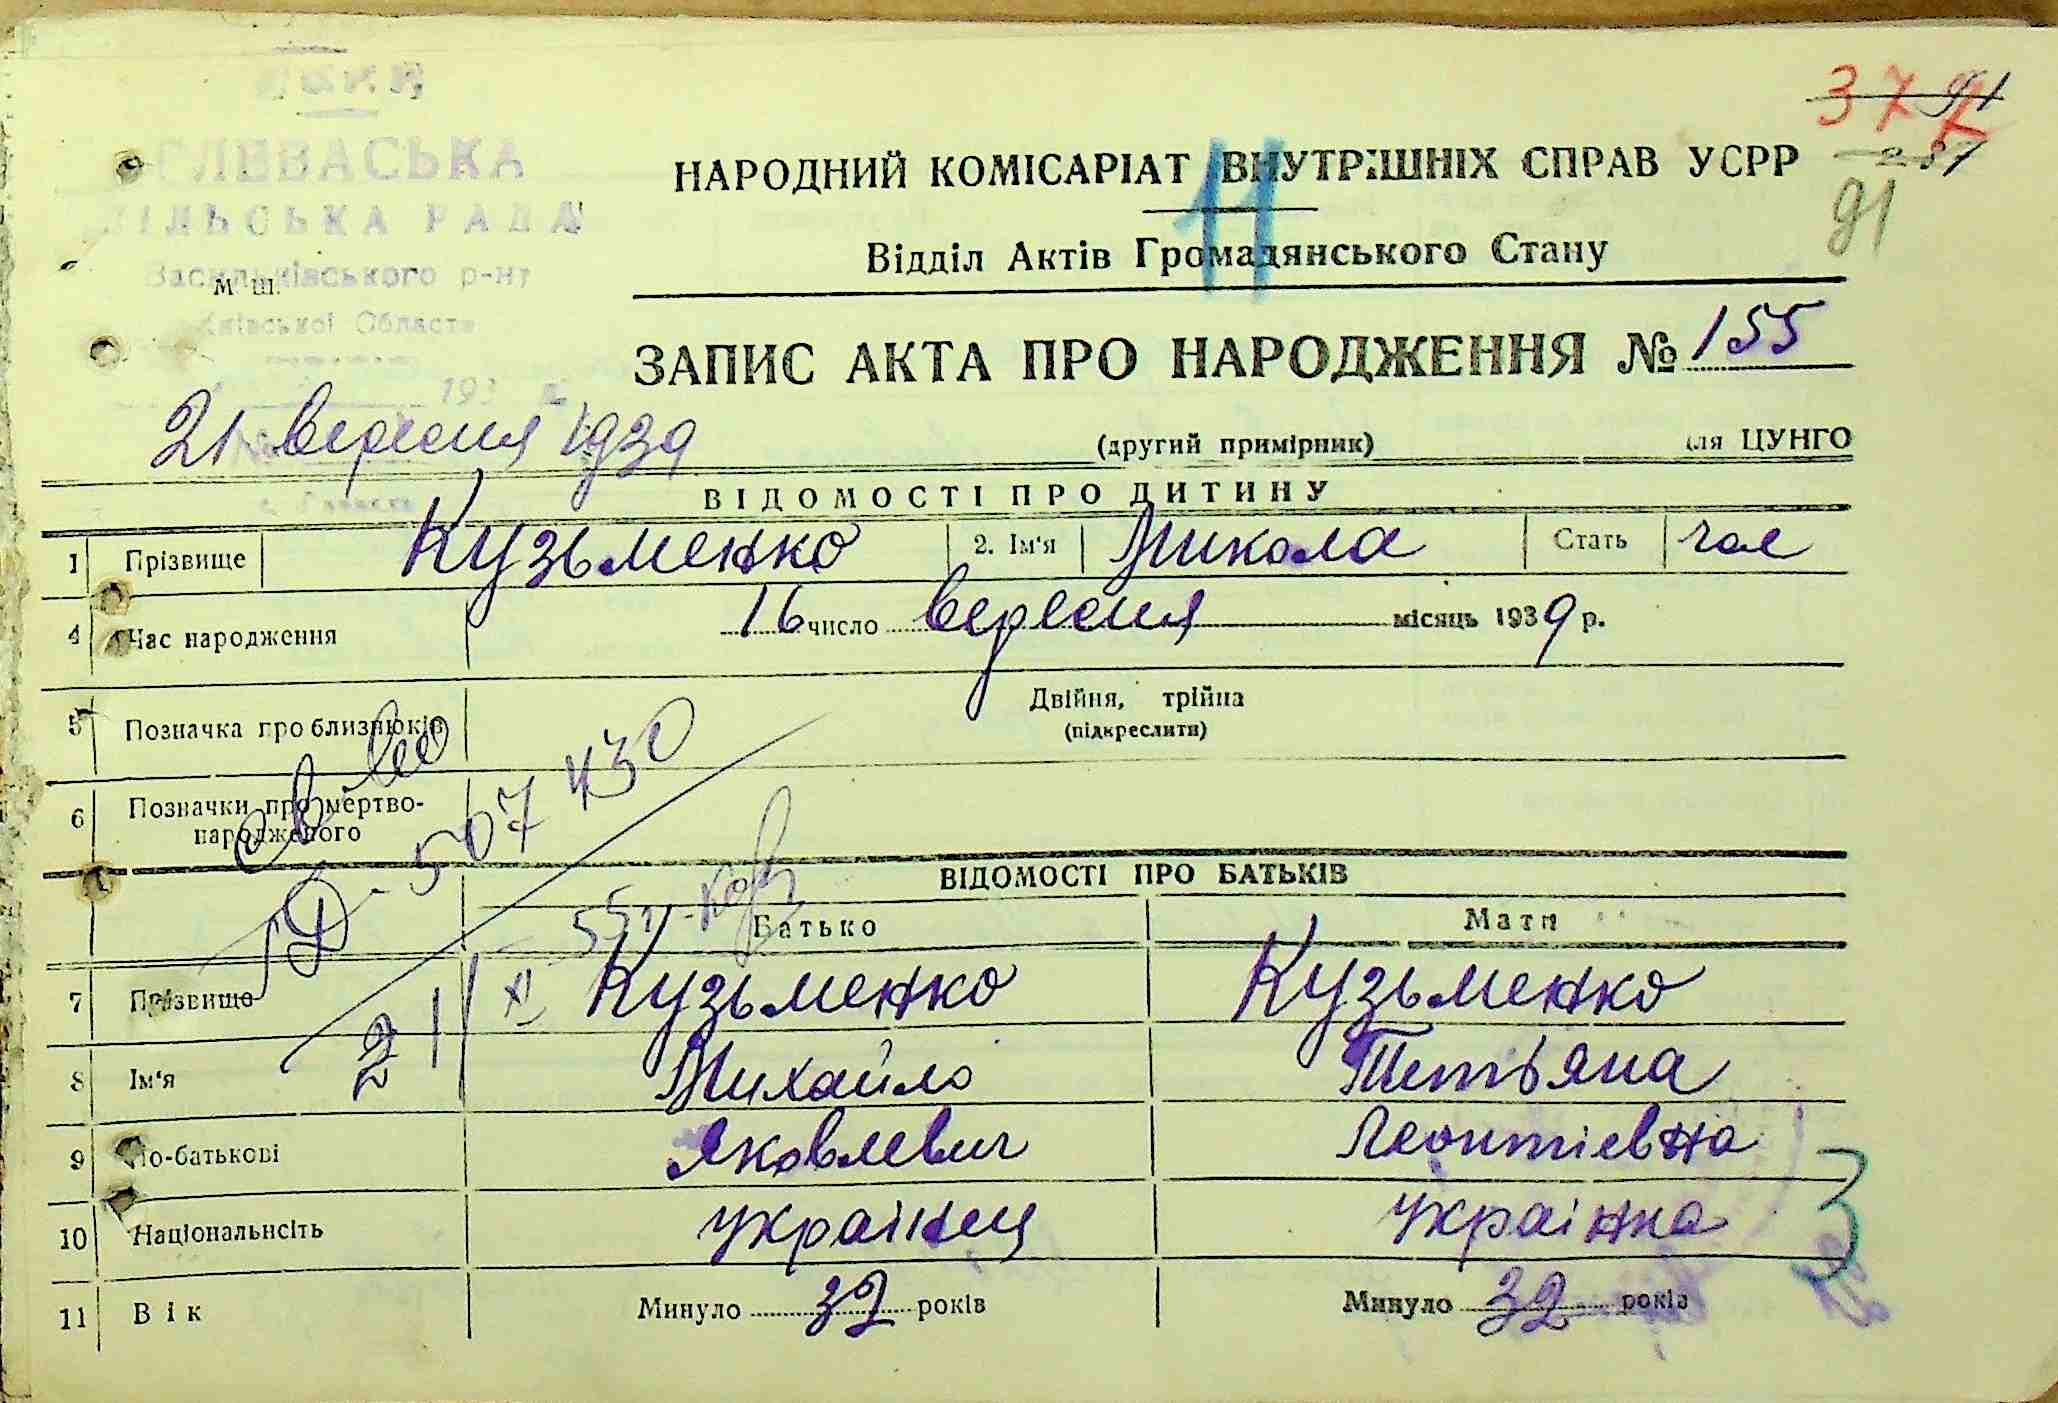 СІЛЬСЬКА РАДА
Васильківського р-ну
Київської Області
193
м. ш.
377
91
НАРОДНИЙ КОМІСАРІАТ ВНУТРІШНІХ СПРАВ УСРР
11
91
Відділ Актів Громадянського Стану
ЗАПИС АКТА ПРО НАРОДЖЕННЯ № 155
21 вересня 1939 (другий примірник) для ЦУНГО
ВІДОМОСТІ ПРО ДИТИНУ
1 Прізвище Кузьменко 2. Ім'я Микола Стать чол
4 Час народження 16 число вересня місяць 1939 р.
5 Позначка про близнюків Двійня, трійна
(підкреслити)
6 Позначки про мертво-
народженого
507430
ВІДОМОСТІ ПРО БАТЬКІВ
Батько Мати
7 Прізвище Кузьменко Кузьменко
8 Ім'я Михайло Тетьяна
9 По-батькові Яковлевич Леонтіевна
10 Національність украінец украінка
3
11 Вік Минуло 32 років Минуло 32 років